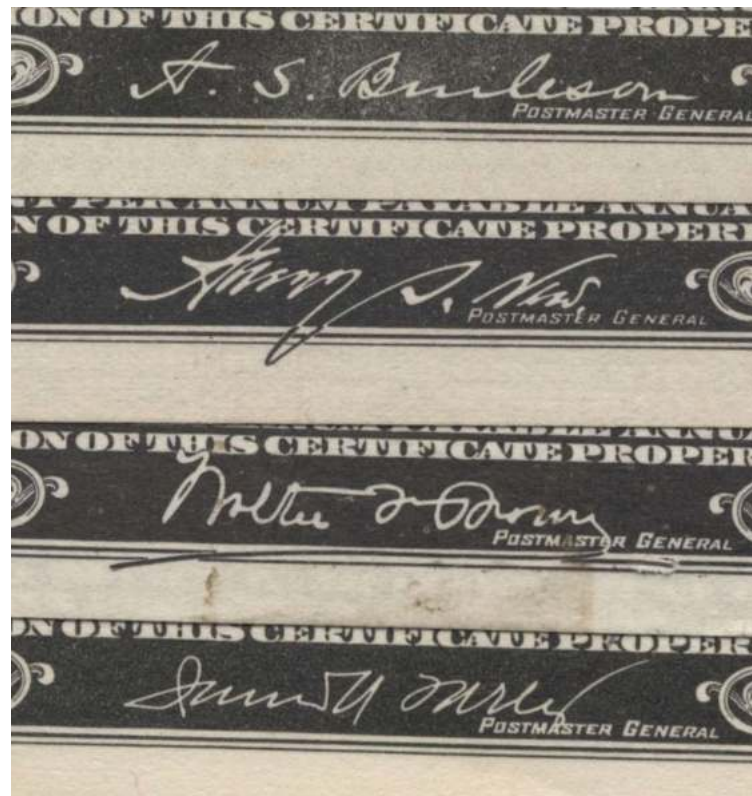 ION OF THIS CERTIFICATE PROPE
A. S. Burleson
POSTMASTER GENERAL
PER ANNUM PAYABLE ANNUA
N OF THIS CERTIFICATE PROPER
Harry S. New,
POSTMASTER GENERAL
ON OF THIS CERTIFICATE PROPER
Walter F Brown
POSTMASTER GENERAL
ON OF THIS CERTIFICATE PROPER
James A Farley
POSTMASTER GENERAL